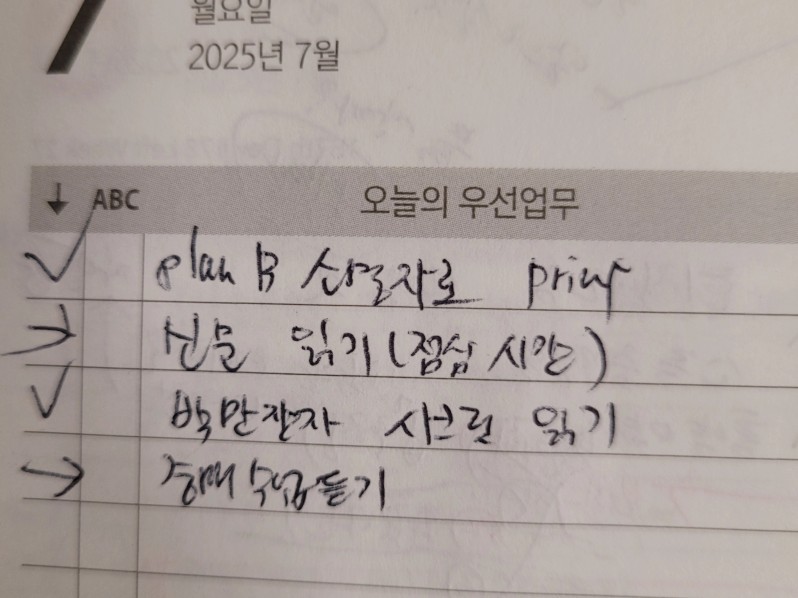 7
월요일
2025년 7월
↓ ABC 오늘의 우선업무
✓ plan B 실물자료 print
→ 신문 읽기 (점심 시간)
✓ 백만장자 시크릿 읽기
→ 수업듣기